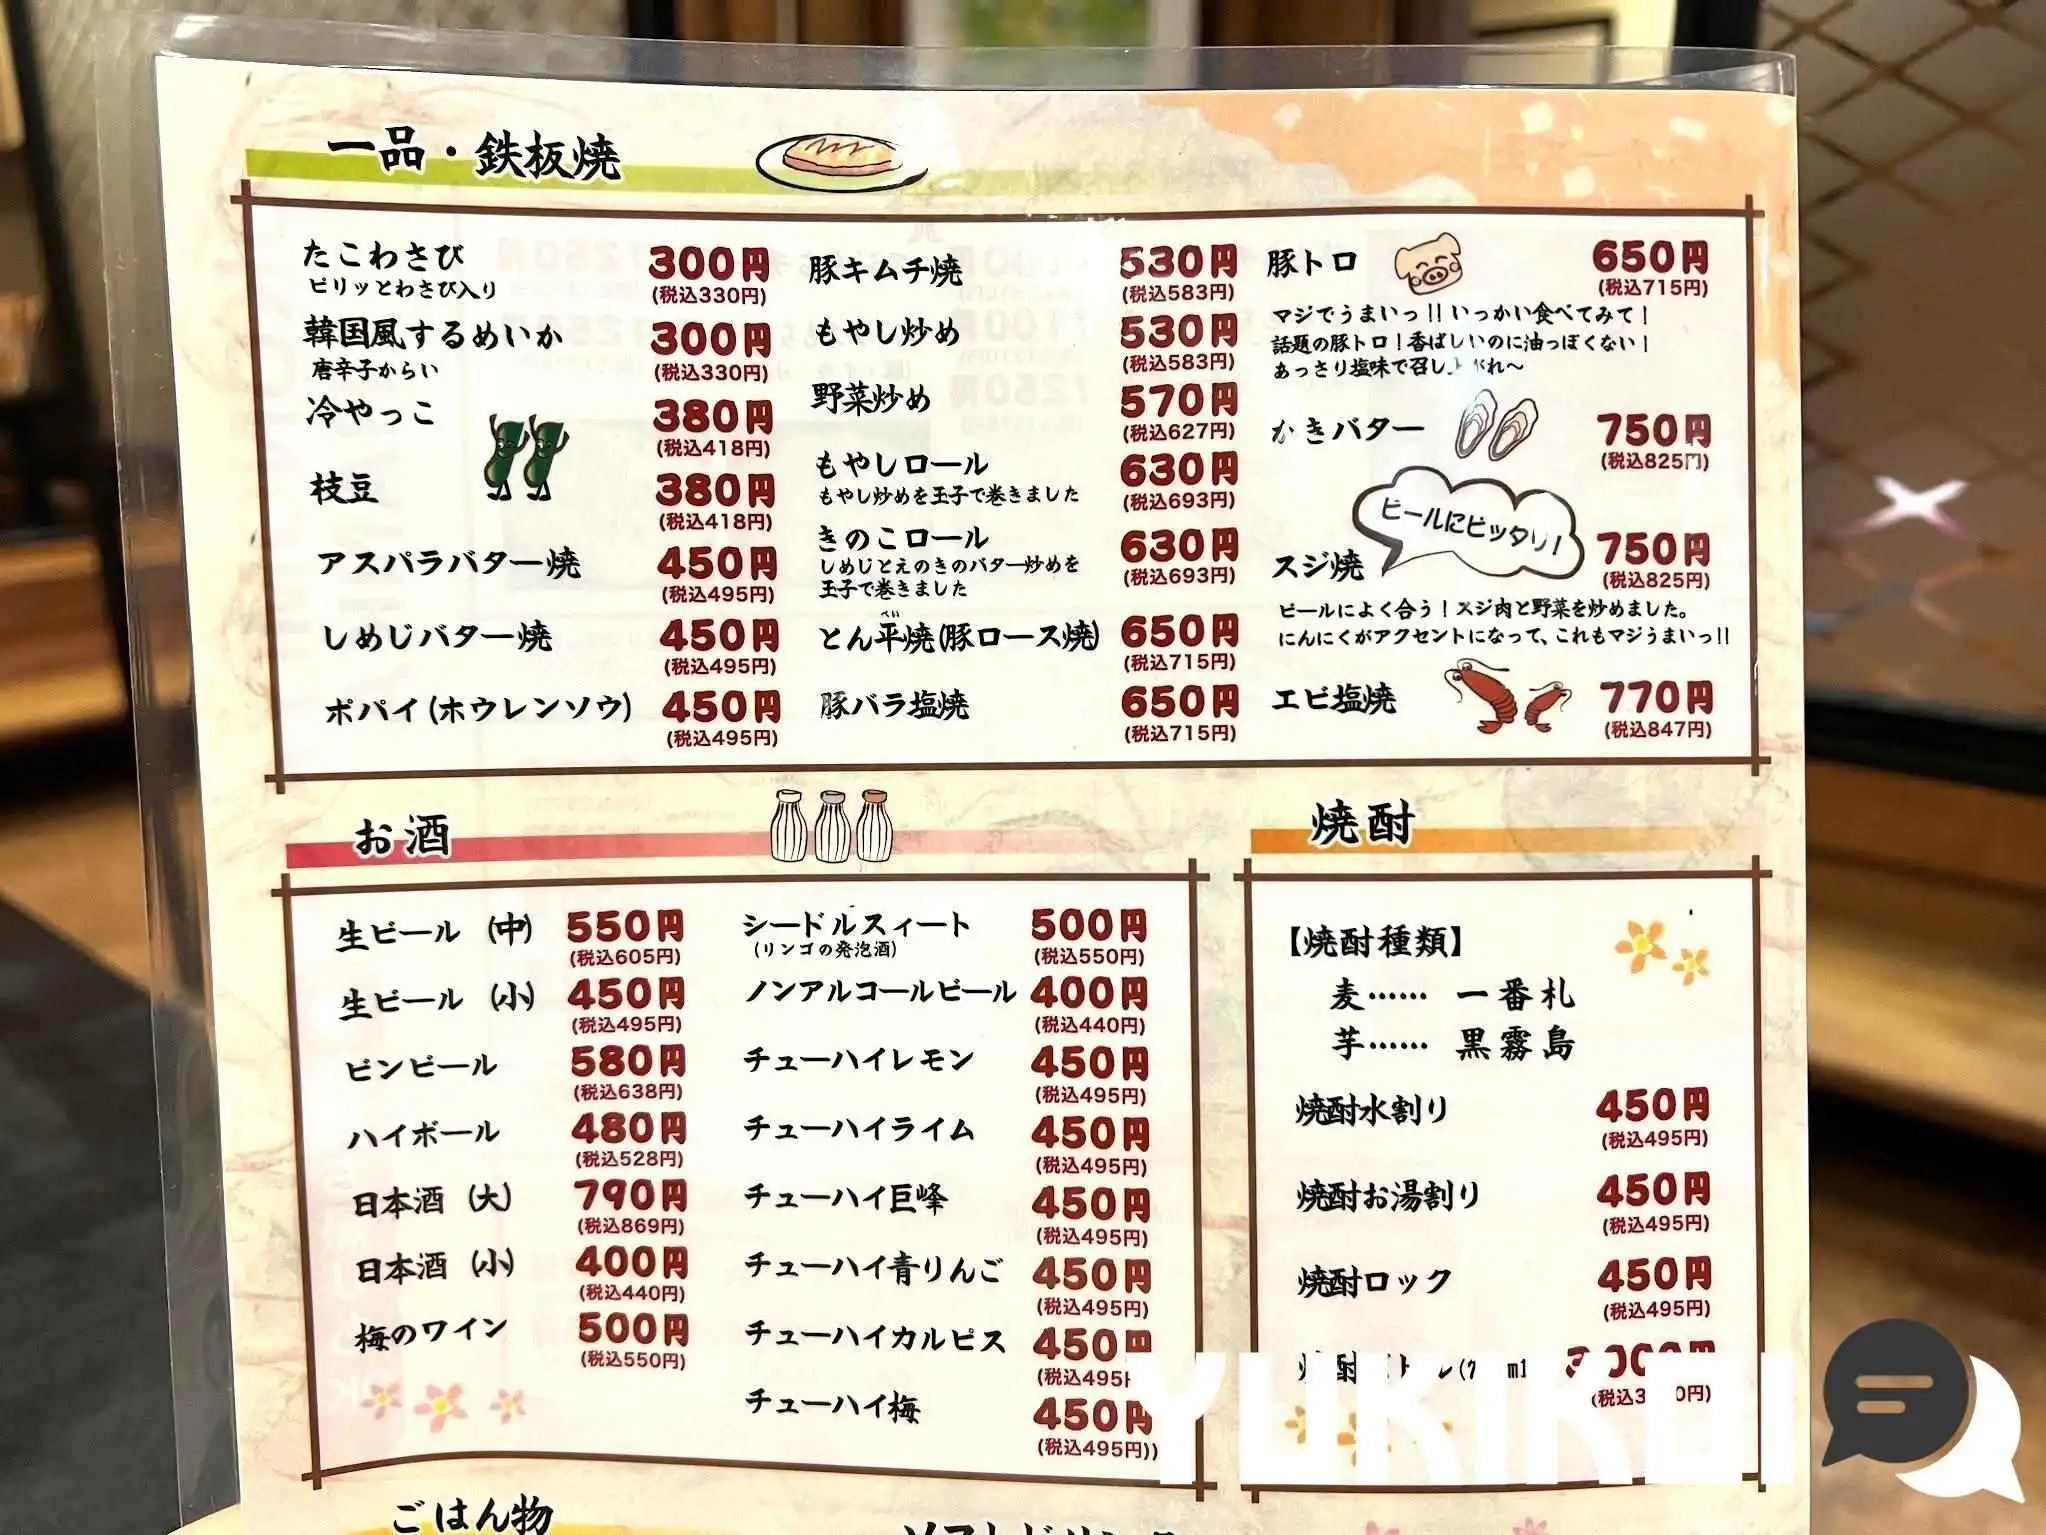 一品・鉄板焼
たこわさび 300円
ピリッとわさび入り (税込330円)
韓国風するめいか 300円
唐辛子からい (税込330円)
冷やっこ 380円
(税込418円)
枝豆 380円
(税込418円)
アスパラバター焼 450円
(税込495円)
しめじバター焼 450円
(税込495円)
ポパイ(ホウレンソウ) 450円
(税込495円)
豚キムチ焼 530円
(税込583円)
もやし炒め 530円
(税込583円)
野菜炒め 570円
(税込627円)
もやしロール 630円
もやし炒めを玉子で巻きました (税込693円)
きのこロール 630円
しめじとえのきのバター炒めを (税込693円)
玉子で巻きました
ぺい
とん平焼(豚ロース焼) 650円
(税込715円)
豚バラ塩焼 650円
(税込715円)
豚トロ 650円
(税込715円)
マジでうまいっ!!いっかい食べてみて!
話題の豚トロ!香ばしいのに油っぽくない!
あっさり塩味で召し上がれ〜
かきバター 750円
(税込825円)
ビールにピッタリ!
スジ焼 750円
(税込825円)
ビールによく合う!スジ肉と野菜を炒めました。
にんにくがアクセントになって、これもマジうまいっ!!
エビ塩焼 770円
(税込847円)
お酒
生ビール (中) 550円
(税込605円)
生ビール (小) 450円
(税込495円)
ビンビール 580円
(税込638円)
ハイボール 480円
(税込528円)
日本酒 (大) 790円
(税込869円)
日本酒 (小) 400円
(税込440円)
梅のワイン 500円
(税込550円)
シードルスィート 500円
(リンゴの発泡酒) (税込550円)
ノンアルコールビール 400円
(税込440円)
チューハイレモン 450円
(税込495円)
チューハイライム 450円
(税込495円)
チューハイ巨峰 450円
(税込495円)
チューハイ青りんご 450円
(税込495円)
チューハイカルピス 450円
(税込495円
チューハイ梅 450円
(税込495円))
焼酎
【焼酎種類】
麦…… 一番札
芋…… 黒霧島
焼酎水割り 450円
(税込495円)
焼酎お湯割り 450円
(税込495円)
焼酎ロック 450円
(税込495円)
焼酎
ごはん物